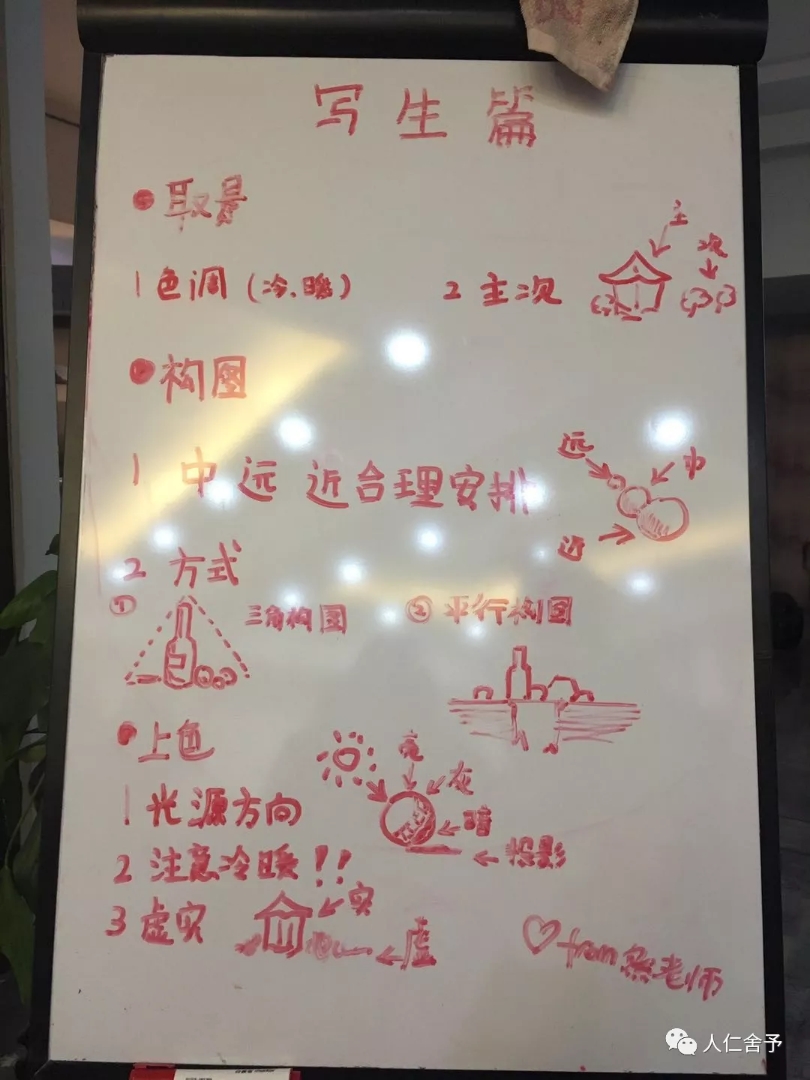 写生篇
取景
1 色调（冷、暖） 2 主次
主
次
构图
1 中 远 近合理安排
远
中
近
2 方式
① 三角构图 ② 平行构图
上色
亮
灰
暗
投影
1 光源方向
2 注意冷暖！！
3 虚实
实
虚
from 熊老师
人仁舍予